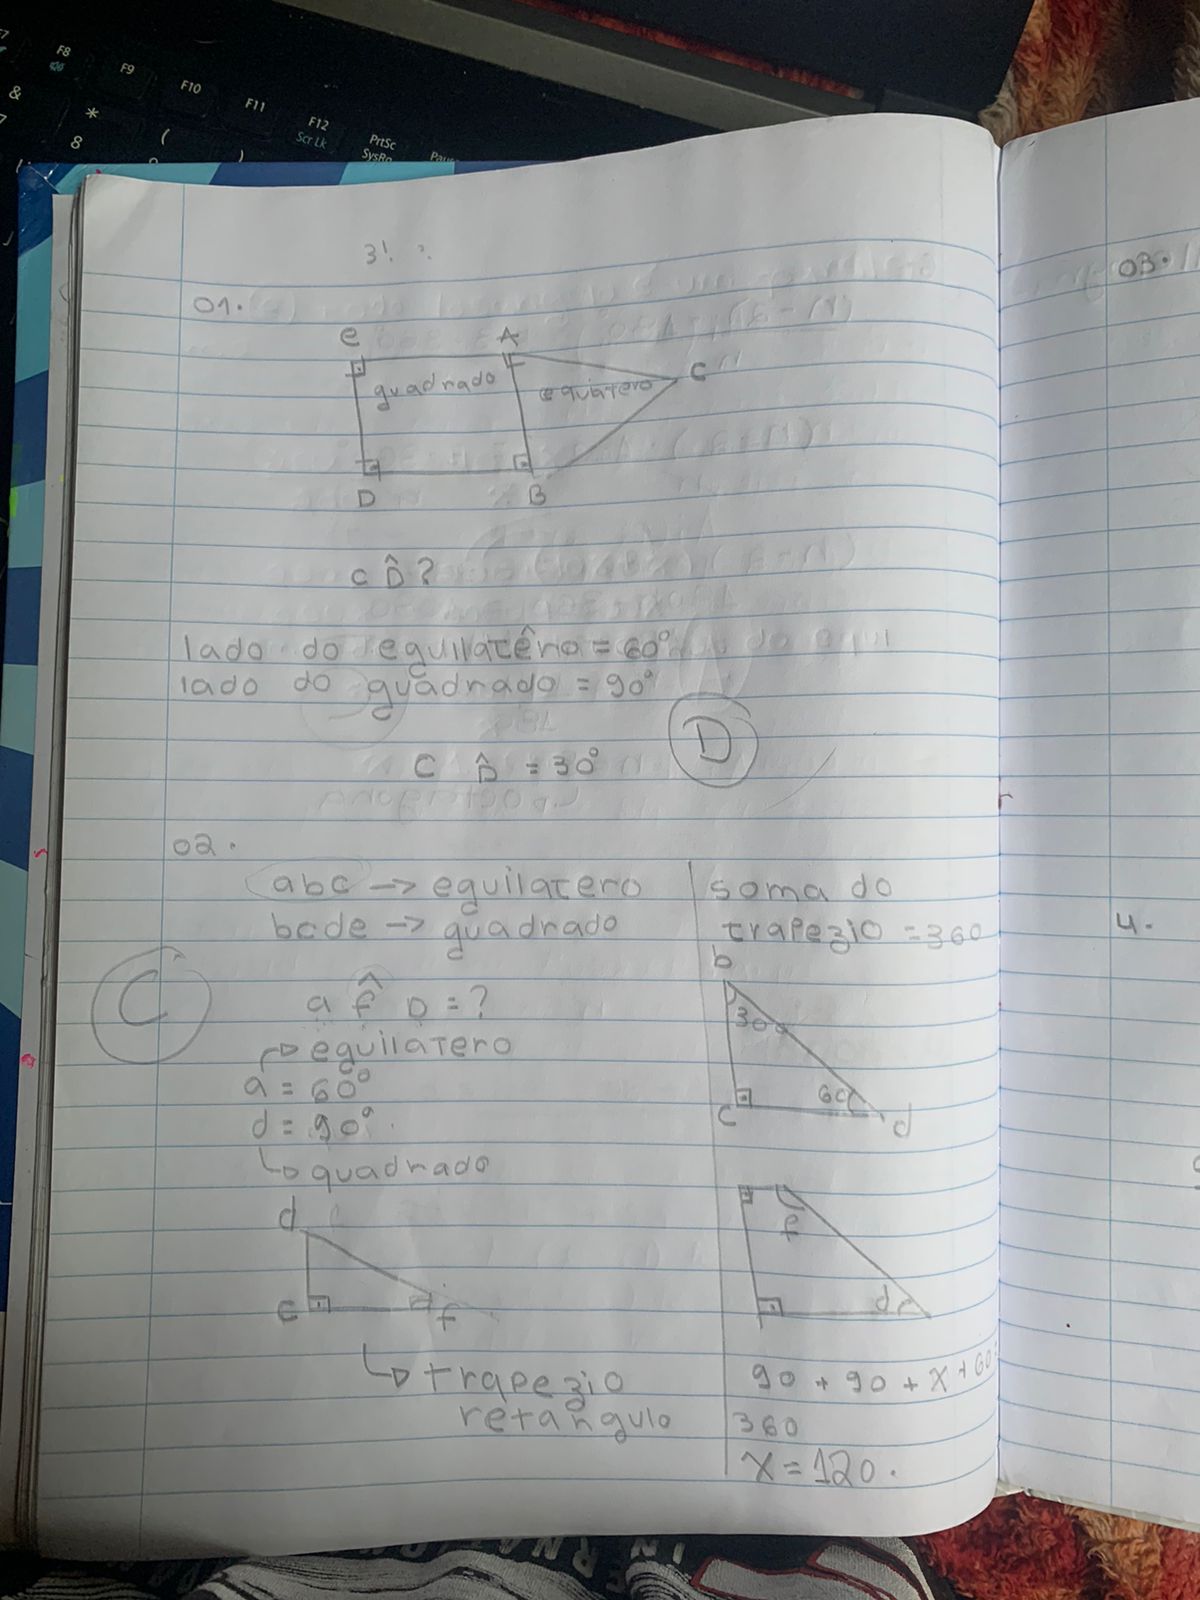 F8
F9
F10
F11
F12
Scr Lk
PrtSc
SysRq
&
*
8
(
)
3!
01.
e A
C
quadrado
equilatero
D B
C D̂ ?
lado do equilatêro = 60°
lado do quadrado = 90°
D
C D̂ = 30°
02.
abc → equilatero
bcde → quadrado
C
a f̂ D = ?
↳ equilatero
a = 60°
d = 90°
↳ quadrado
d
e
f
↳ trapezio
retangulo
soma do
trapezio = 360
b
30
60
c d
f
d
90 + 90 + x + 60 =
360
x = 120.
03.
4.